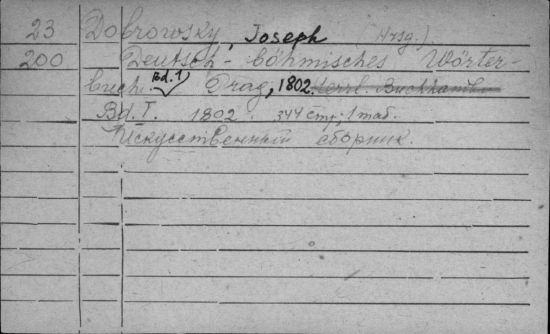 23 Dobrowsky, Joseph (Hrsg.)
200 Deutsch-böhmisches Wörter-
buch. Bd. 1 Prag, 1802. Herrl. Buchhandlu
Bd. I. 1802. 344 стр., 1 таб.
Искусственный сборник.